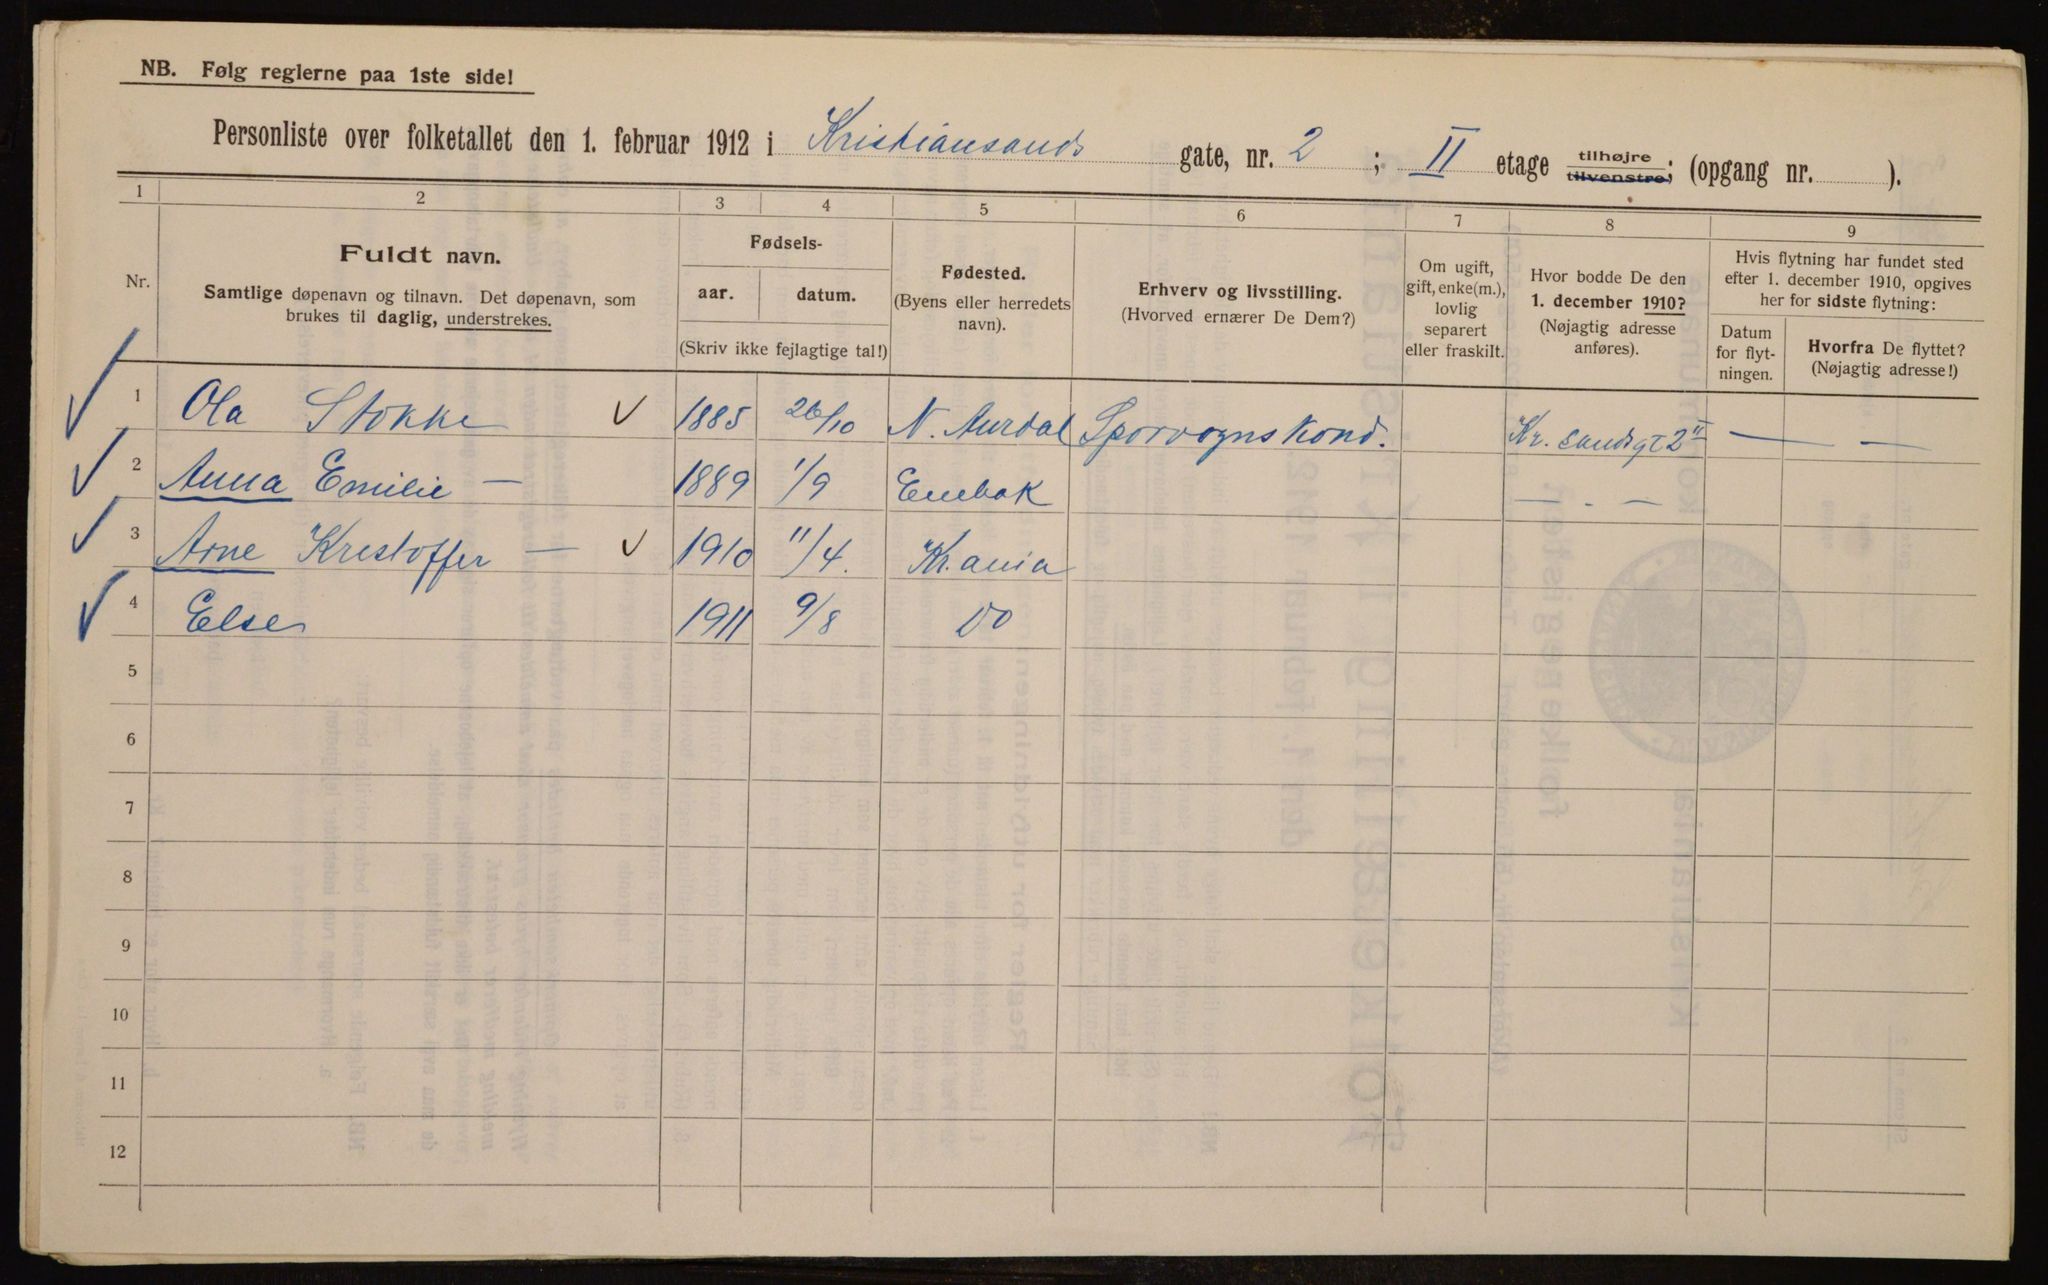 NB. Følg reglerne paa 1ste side!
Personliste over folketallet den 1. februar 1912 i Kristiansands gate, nr. 2 ; II etage tilhøjre tilvenstre; (opgang nr. ).
1 2 3 4 5 6 7 8 9
Nr.
Fuldt navn.
Samtlige døpenavn og tilnavn. Det døpenavn, som
brukes til daglig, understrekes.
Fødsels-
aar. datum.
(Skriv ikke fejlagtige tal!)
Fødested.
(Byens eller herredets
navn).
Erhverv og livsstilling.
(Hvorved ernærer De Dem?)
Om ugift,
gift, enke(m.),
lovlig
separert
eller fraskilt.
Hvor bodde De den
1. december 1910?
(Nøjagtig adresse
anføres).
Hvis flytning har fundet sted
efter 1. december 1910, opgives
her for sidste flytning:
Datum
for flyt-
ningen.
Hvorfra De flyttet?
(Nøjagtig adresse!)
1 Ola Stokke √ 1885 26/10 N. Aurdal Sporvognskond. Kr. sandsgt 2 II — —
2 Anna Emilie — 1889 1/9 Enebak — . —
3 Arne Krestoffer — √ 1910 11/4. Kr.ania
4 Else 1911 9/8 Do
5
6
7
8
9
10
11
12